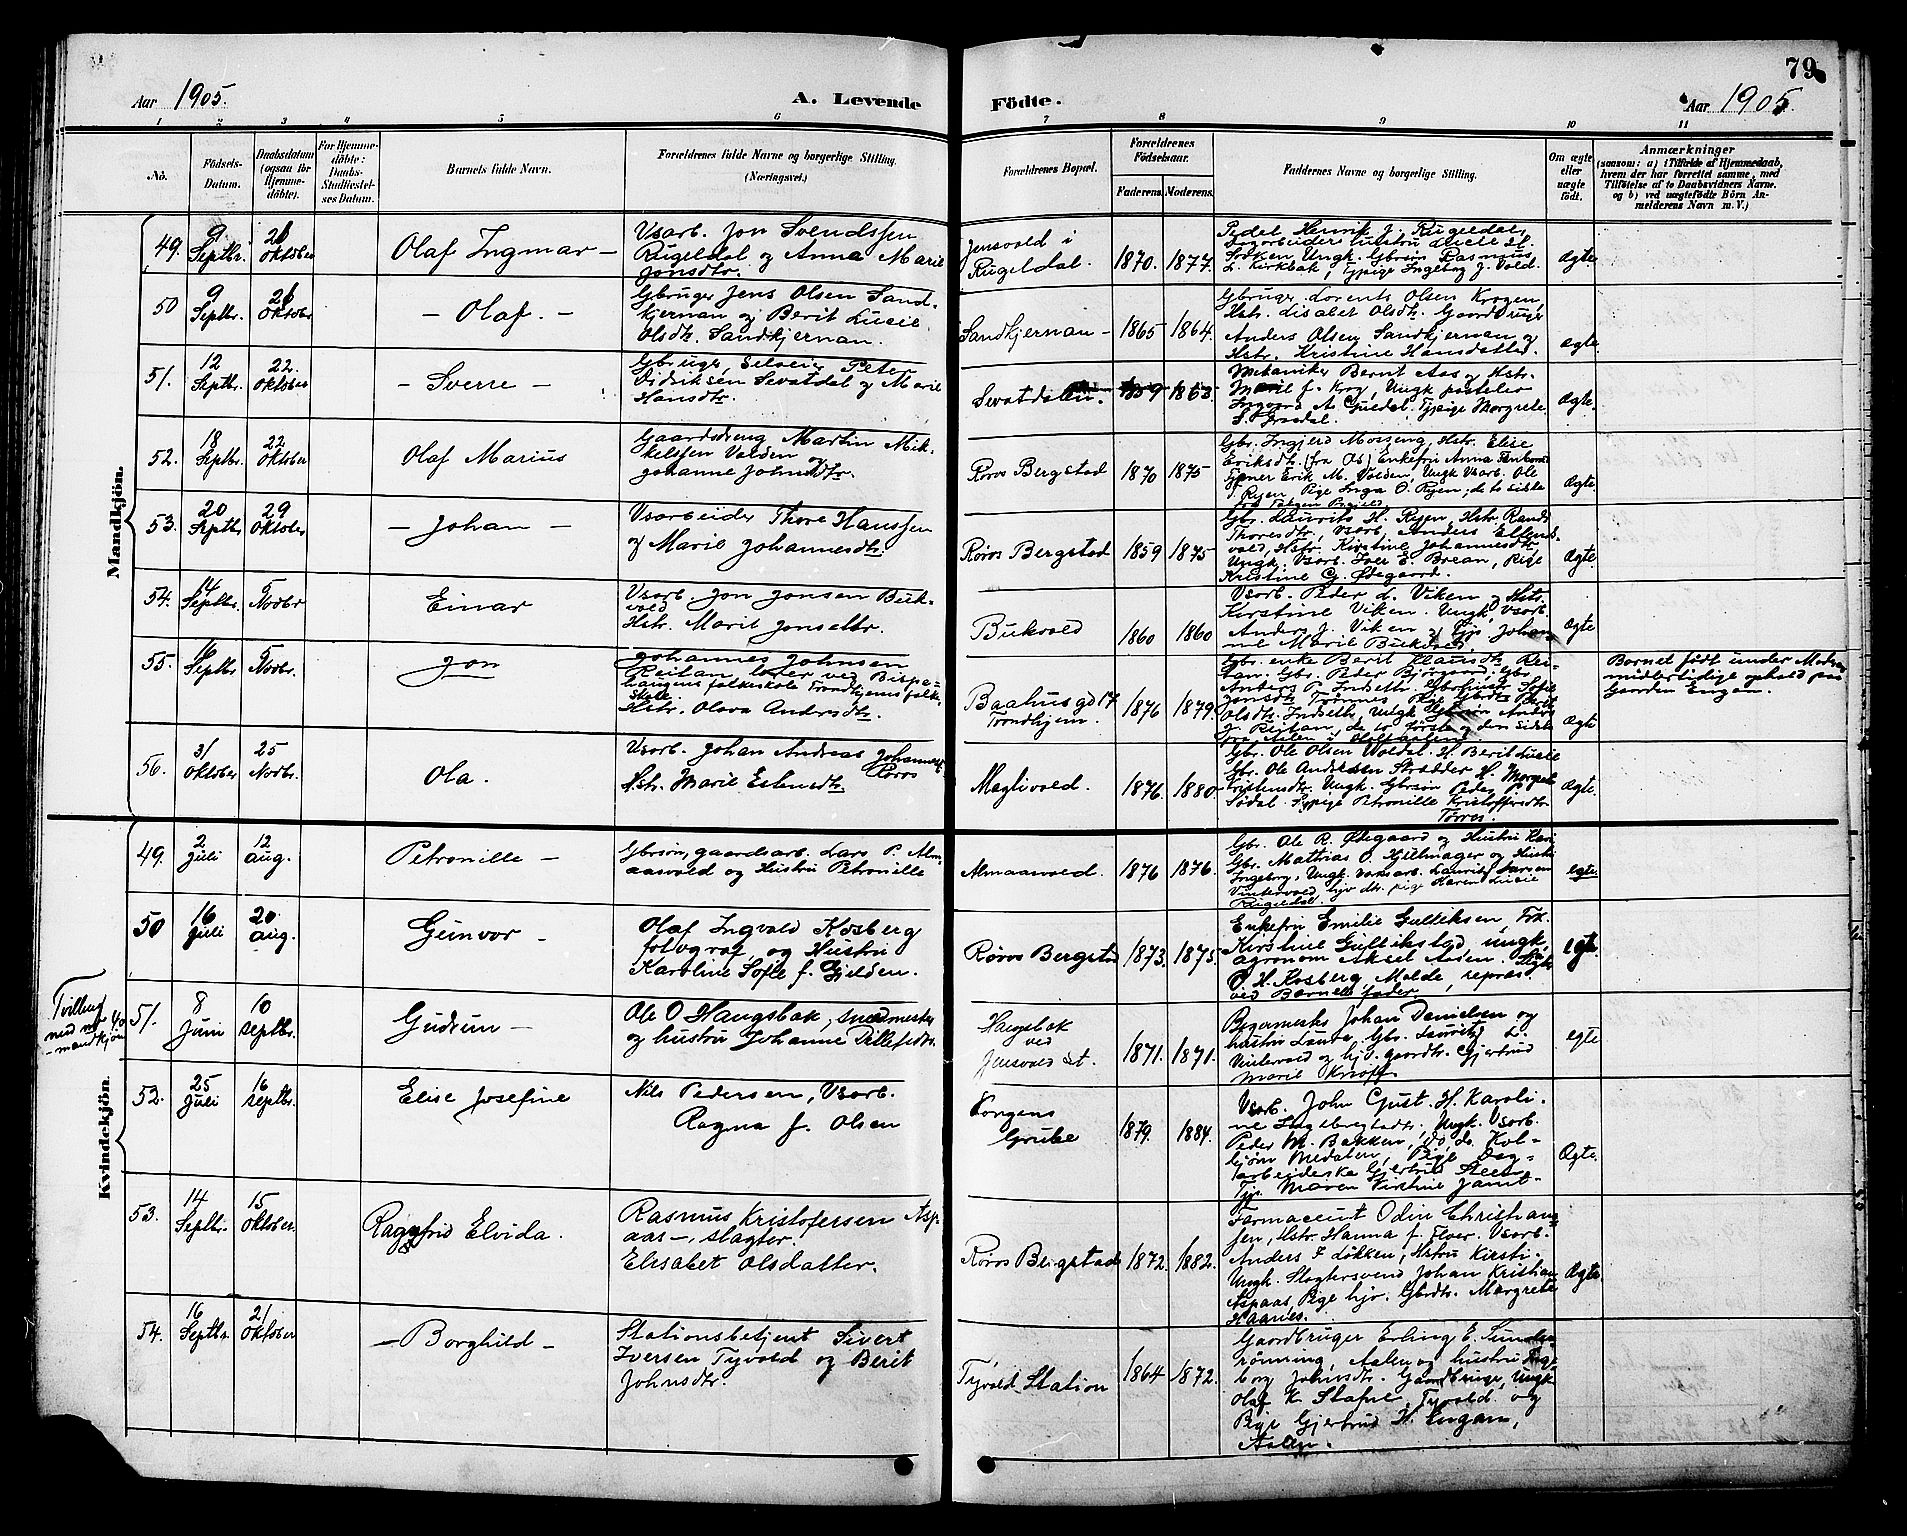 79
Aar 1905.
A. Levende
Födte.
Aar 1905.
1 2 3 4 5 6 7 8 9 10 11
No.
Födsels-Datum.
Daabsdatum (ogsaa for Hjemmedöbte).
For Hjemmedöbte: Daabs-Stadfæstelses Datum.
Barnets fulde Navn.
Forældrenes fulde Navne og borgerlige Stilling. (Næringsvei.)
Forældrenes Bopæl.
Forældrenes Födselsaar.
Faderens. Moderens.
Faddernes Navne og borgerlige Stilling.
Om ægte eller uægte födt.
Anmærkninger
(saasom: a) i Tilfælde af Hjemmedaab, hvem der har forrettet samme, med Tilföielse af to Daabsvidners Navne. og b) ved uægtefödte Börn Anmelderens Navn m. V.)
Mandkjön.
49. 9 Septbr. Oktober
Olaf Ingmar –
Vsarb. Jon Svendssen
Rugeldal og Anna Marie
Jonsdtr.
Jensvold i
Rugeldal.
1870. 1877.
Pedel Henrik J. Rugeldal,
Ungk. Gbrsøn Rasmus
Kirkbak, Tjpige Ingeborg J. Vold.
Ægte.
50 9 Septbr. Oktober
– Olaf. –
Gbruger Jens Olsen Sand-
kjernan og Berit Lucie
Olsdtr. Sandkjernan.
Sandkjernan –
1865 1864.
Gbruger Lorents Olsen Krogen,
Hstr. Lisabet Olsdtr. Gaardbruger
Anders Olsen Sandkjernan og
Hstr. Kristine Hansdatter.
Ægte.
51. 12 Septbr. 22. Oktober
– Sverre –
Gbruger, Peter
Didriksen Sevatdal og Marie
Hansdtr.
Sevatdalen.
1859 1863.
Mekaniker Bernt Aas og Hstr.
Marie f. Krog, Ungk.
Tjpige Margrete
Ægte.
52. 18 Septbr. 22 Oktober
Olaf Marius
Gaardsdreng Martin Mik-
kelssen Volden og
Johanne Johnsdtr.
Røros Bergstad
1870 1875
Gbr. Ingjerd Mosseng, Hstr. Elise
Eriksdtr. (fra Os) Enkefru Anna
Erik M. Volden, Ungk. Vsarb. Ole
J. Ryen, Pige Inga O. Ryen; de to sidste
Ægte
53. 20 Septbr. 29 Oktober
– Johan –
Vsarbeider Thore Hanssen
og Marie Johannesdtr.
Røros Bergstad
1859 1875
Gbr. Laurits H. Ryen, Hstr. Randi
Thoresdtr, Vsarb. Anders
vold, Hstr. Kirstine Johannesdtr,
Ungk. Vsarb. Iver E. Brean, Pige
Kristine G. Ødegaard.
Ægte
54. 14 Septbr. 5 Novbr
Einar
Vsarb. Jon Jonsen Buk-
vold
Hstr. Marit Jonsdtr.
Bukvold
1860 1860
Vsarb. Peder d. Viken og Hstr.
Kirstine Viken. Ungk. Vsarb.
Anders J. Viken og Tjp. Johan-
ne Marie Bukvold.
Ægte
55. 16 Septbr 5 Novbr.
Jon
Johannes Johnsen
Reitan lærer ved Bispe-
haugens folkeskole Trondhjems folke-
skole.
Hstr. Olava Andrsdtr.
Baahusgd 17
Trondhjem.
1876 1879.
Gbr. enke Berit Rei-
tan. Gbr. Peder Bjørgaard, Gbr.
Anders P. Indseth, Gbrhustr. Sofie
Olsdtr. Indseth, Ungk. Gbrsøn Anders
J. Reitan, de to første og den sidste
fra Aalen i Holtaalen
Ægte
Barnet født under Modrens
midlertidige ophold paa
Gaarden Engan.
56. 31 Oktober 25 Novbr.
Ola.
Vsarb. Johan Andreas Johannes.
Røros
Hstr. Marie Estensdtr.
Møglivold.
1876. 1880.
Gbr. Ole Olsen H. Berit Lucie
Gbr. Ole Andersen H. Margrete
Ungk. Gbrsøn Peder P.
Sødal. Tjpige Petronille Kristoffersdtr
Torres.
Ægte
Kvindekjön.
49. 2 Juli 12 aug.
Petronille –
Gbrsøn, gaardsarb. Lars P. Alm-
aasvold og Hustru Petronille
Almaasvold.
1876 1876.
Gbr. Ole R. Ødegaard og Hustru Kari
Gbr. Mathias O. Hjelmager og Hustru
Ingeborg, Ungk. Laurits Larsen
Vintervold, hjv. dtr. pig Karen Lucie
Rugeldal.
egte.
50 16 Juli 20 aug.
Gunvor –
Olaf Ingvald Kosberg
fotograf, og Hustru
Karoline Sofie f. Gjelden.
Røros Bergstad
1873. 1875.
Enkefru Emilie Gulliksen, Frk.
Kirstine Gullikstad, ungk,
agronom Aksel Aasen.
O. H. Kosberg, Molde, repræs.
ved Barnets fader
egte.
Tvilling
med nr 40
– mandkjön
51. 8 Juni 10 septbr.
Gudrun –
Ole O Haugsbak, smedmester
og hustru Johanne Tillefsdtr.
Haugsbak
ved
Jensvold St.
1871. 1871.
Johan Danielsen og
hustru Laura, Gbr. Lauritz L.
Vintervold og hjv. gaardtr. Gjertrud
Marie Knoff.
egte
52. 25 Juli 16 septbr.
Elise Josefine
Nils Pedersen, Vsarb.
Ragna f. Olsen
Kongens
Grube
1879. 1884.
Vsarb. John Gust. H. Karoli-
ne Ingebregtsdtr., Ungk. Vsarb.
Peder M. Bakken, do. do. Kol-
bjørn Medalen, Pige Dag-
arbejderske Gjertrud Steen
Tjp. Maren Kirstine Jamt-
Ægte.
53. 14 Septbr. 15 Oktober
Ragnfrid Elvida.
Rasmus Kristofersen Asp-
aas –, slagter.
Elisabet Olsdatter.
Røros Bergstad
1872. 1882.
Farmaceut Odin Christian-
sen, Hstr. Hanna f. Floer. Vsarb.
Anders J Løkken, Hstru Kirsti.
Ungk. Slagtersvend Johan Kristian
Aspaas, Pige hjv. Gbrdtr. Margrete
Haanes.
Ægte
54. 16 Septbr. 21 Oktober
– Borghild –
Stationsbetjent Sivert
Iversen Tyvold og Berit
Johnsdtr.
Tyvold Station
1864 1872.
Gaardbruger Erling E. Sunde-
rønning, Aalen og hustru Inge-
borg Johnsdtr. Gaardbruger, Ungk.
Olaf K. Stafne, Tyvold, og
Pige Gjertrud H. Engan,
Aalen.